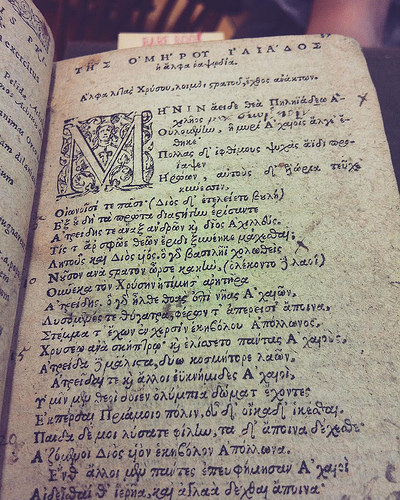 ΤΗΣ ΟΜΗΡΟΥ ΙΛΙΑΔΟΣ
ἡ ἄλφα ῥαψῳδία.
Ἄλφα λιτὰς Χρύσου, λοιμὸν στρατοῦ, ἔχθος ἀνάκτων.
ΜΗΝΙΝ ἄειδε θεὰ Πηληϊάδεω Ἀ-
χιλῆος
Οὐλομένην, ἣ μυρί' Ἀχαιοῖς ἄλγε' ἔ-
θηκε
Πολλὰς δ' ἰφθίμους ψυχὰς ἄϊδι προΐ-
αψεν
Ἡρώων, αὐτοὺς δ' ἑλώρια τεῦχε
κύνεσσιν,
Οἰωνοῖσί τε πᾶσι· (Διὸς δ' ἐτελείετο βουλή)
Ἐξ οὗ δὴ τὰ πρῶτα διαστήτην ἐρίσαντε
Ἀτρείδης τε ἄναξ ἀνδρῶν καὶ δῖος Ἀχιλλεύς.
Τίς τ' ἄρ σφῶε θεῶν ἔριδι ξυνέηκε μάχεσθαι;
Λητοῦς καὶ Διὸς υἱός. ὁ γὰρ βασιλῆϊ χολωθεὶς
Νοῦσον ἀνὰ στρατὸν ὦρσε κακήν, (ὀλέκοντο δὲ λαοί)
Οὕνεκα τὸν Χρύσην ἠτίμησ' ἀρητῆρα
Ἀτρείδης. ὁ γὰρ ἦλθε θοὰς ἐπὶ νῆας Ἀχαιῶν,
Λυσόμενός τε θύγατρα, φέρων τ' ἀπερείσι' ἄποινα,
Στέμμα τ' ἔχων ἐν χερσὶν ἑκηβόλου Ἀπόλλωνος,
Χρυσέῳ ἀνὰ σκήπτρῳ· καὶ ἐλίσσετο πάντας Ἀχαιούς,
Ἀτρείδα δὲ μάλιστα, δύω κοσμήτορε λαῶν,
Ἀτρεῖδαί τε καὶ ἄλλοι ἐϋκνήμιδες Ἀχαιοί,
Ὑμῖν μὲν θεοὶ δοῖεν ὀλύμπια δώματ' ἔχοντες
Ἐκπέρσαι Πριάμοιο πόλιν, εὖ δ' οἴκαδ' ἱκέσθαι.
Παῖδα δέ μοι λύσατε φίλην, τὰ δ' ἄποινα δέχεσθε
Ἁζόμενοι Διὸς υἱὸν ἑκηβόλον Ἀπόλλωνα.
Ἔνθ' ἄλλοι μὲν πάντες ἐπευφήμησαν Ἀχαιοὶ
Αἰδεῖσθαί θ' ἱερῆα, καὶ ἀγλαὰ δέχθαι ἄποινα·